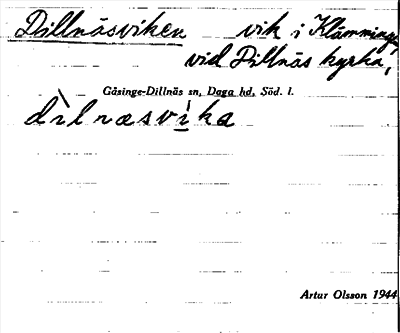 Dillnäsviken vik i Klämmingen
vid Dillnäs kyrka,
Gåsinge-Dillnäs sn, Daga hd, Söd. l.
dìlnæsvika
Artur Olsson 1944